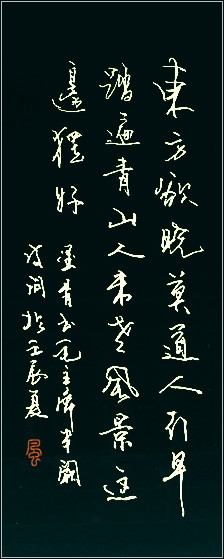 東方欲曉莫道人行早
踏遍青山人未老風景這
邊獨好
青書毛主席半闋
詩詞於壬辰夏